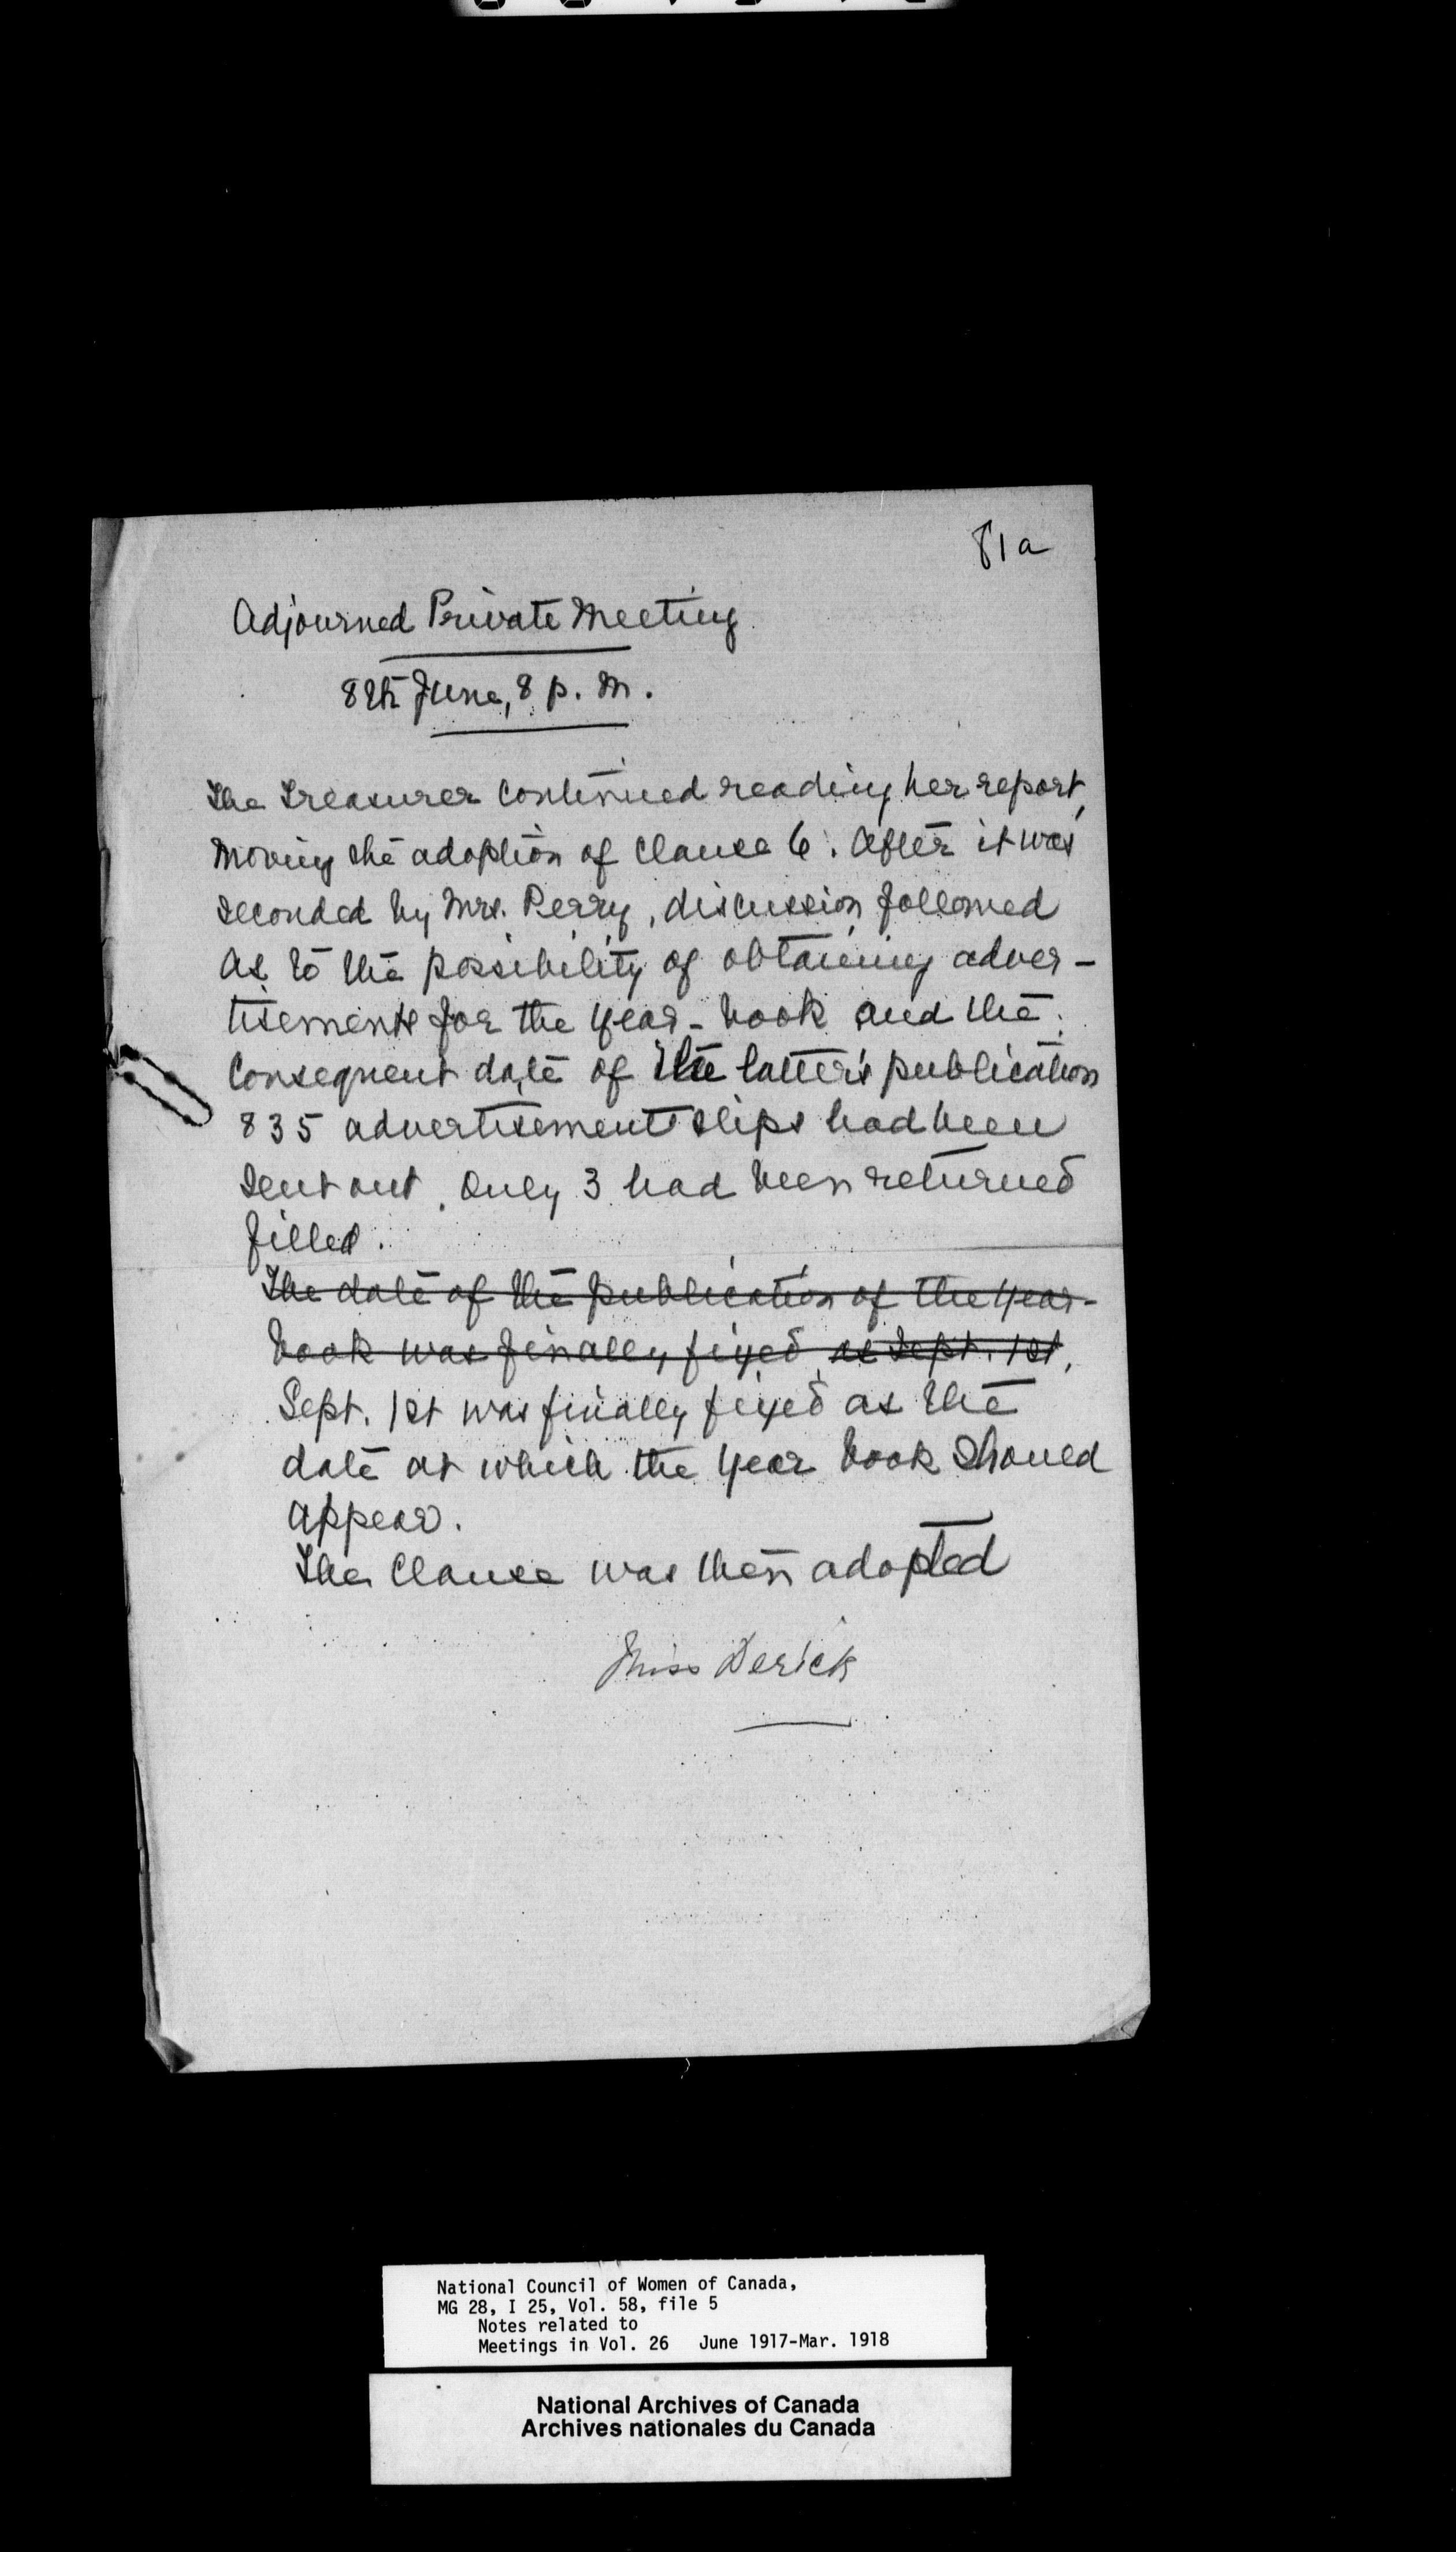 81a
Adjourned Private Meeting
8th June, 8 p.m.
The Treasurer continued reading her report,
moving the adoption of Clause 6. After it was
seconded by Mrs. Perry, discussion followed
as to the possibility of obtaining adver-
tisements for the year-book and the
consequent date of the latter's publication
835 advertisement slips had been
sent out. Only 3 had been returned
filled.
The date of the publication of the year-
book was finally fixed as Sept. 1st,
Sept. 1st was finally fixed as the
date at which the year book should
appear.
The Clause was then adopted
Miss Derick
National Council of Women of Canada,
MG 28, I 25, Vol. 58, file 5
Notes related to
Meetings in Vol. 26 June 1917-Mar. 1918
National Archives of Canada
Archives nationales du Canada